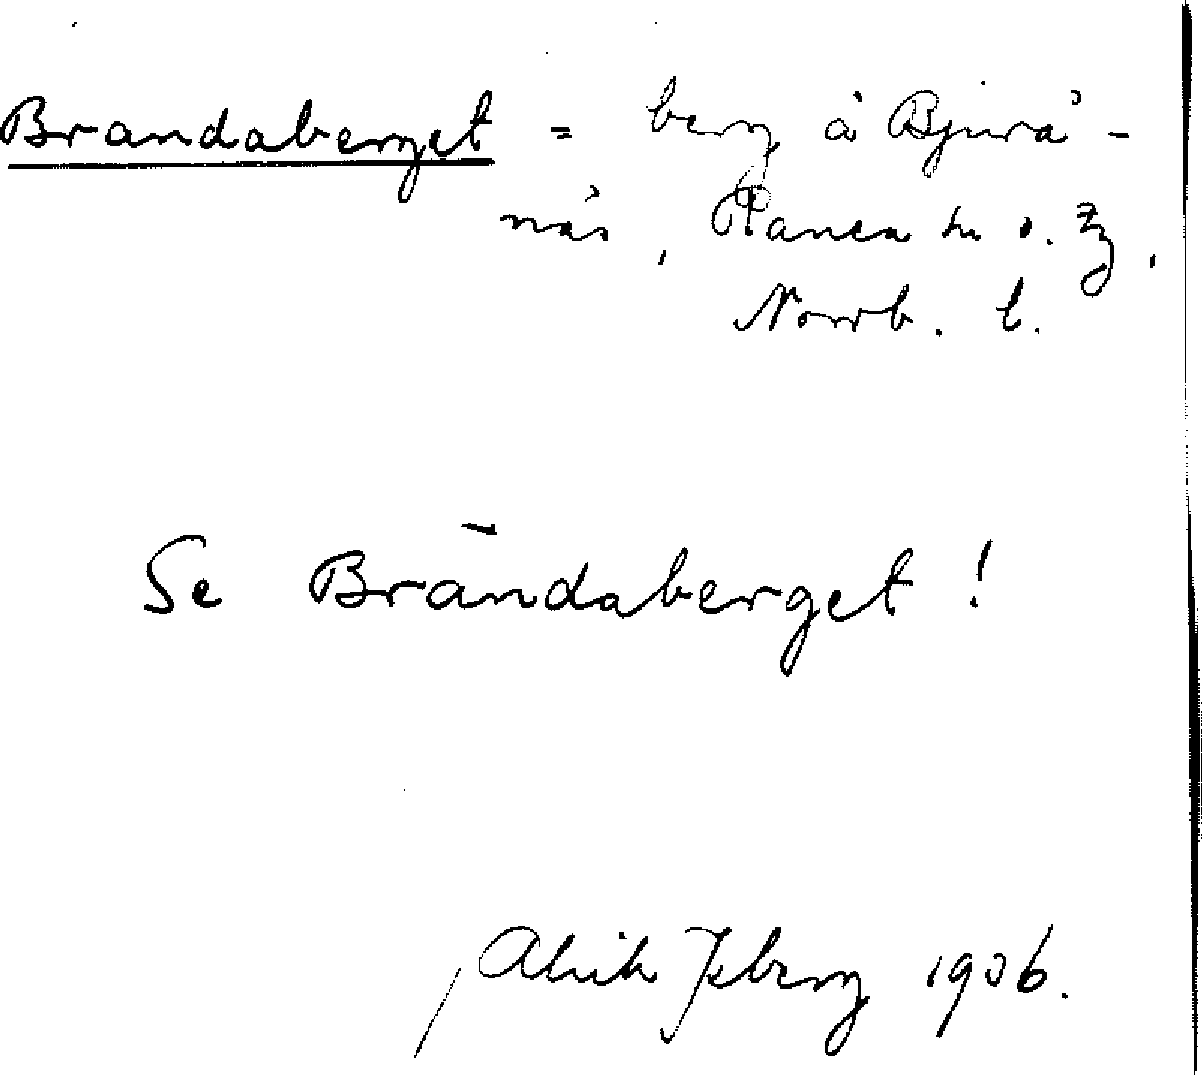 Brandaberget = berg å Bjurå-
näs, Råneå sn o. tg,
Norrb. l.
Se Brändaberget!
Alrik Isberg 1906.